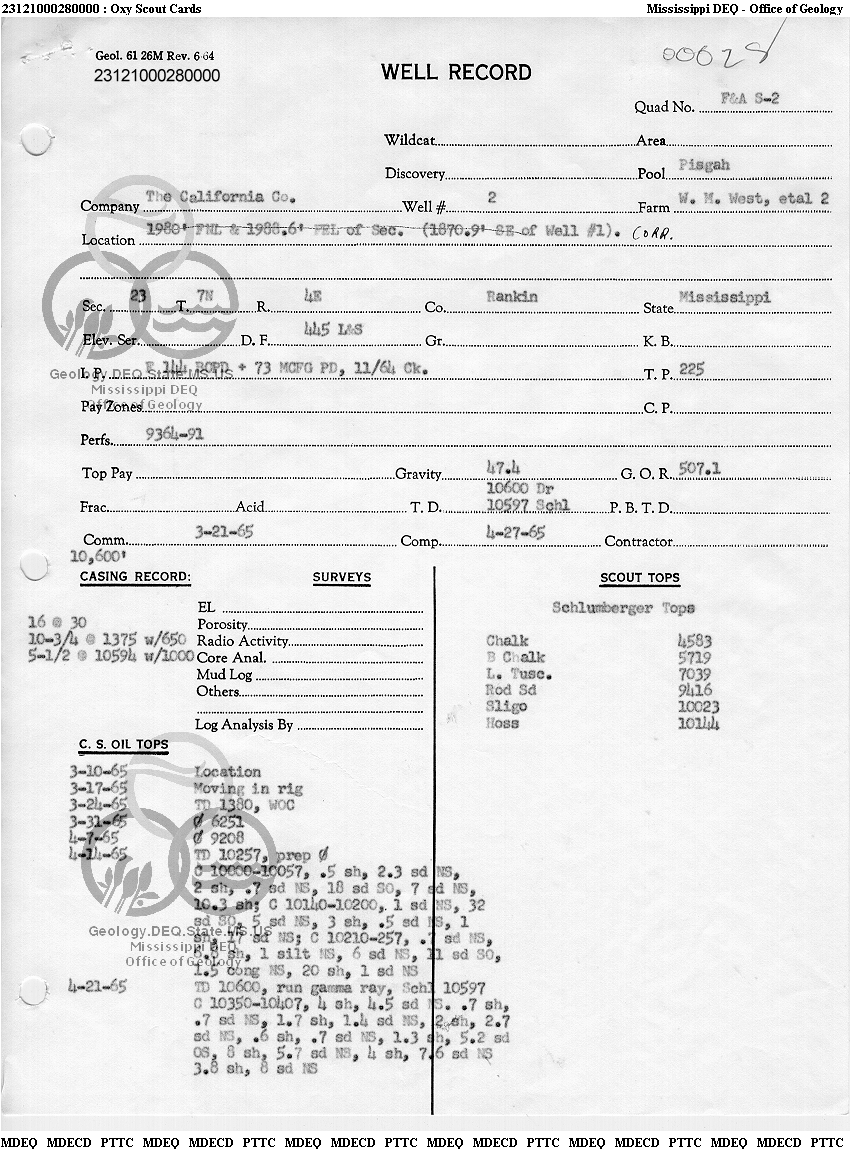 23121000280000 : Oxy Scout Cards Mississippi DEQ - Office of Geology
Geol. 61 26M Rev. 6-64
000028
23121000280000
WELL RECORD
Quad No. F&A S-2
Wildcat Area
Discovery Pool Pisgah
Company The California Co. Well # 2 Farm W. M. West, etal 2
Location 1980' FNL & 1988.6' FEL of Sec. (1870.9' SE of Well #1). CORR.
Sec. 23 T. 7N R. 4E Co. Rankin State Mississippi
Elev. Ser. D. F. 445 L&S Gr. K. B.
I. P. F 144 BOPD + 73 MCFG PD, 11/64 Ck. T. P. 225
Geology.DEQ.State.MS.US
Mississippi DEQ
Office of Geology
Pay Zones C. P.
Perfs. 9364-91
Top Pay Gravity 47.4 G. O. R. 507.1
10600 Dr
Frac. Acid T. D. 10597 Schl P. B. T. D.
Comm. 3-21-65 Comp. 4-27-65 Contractor
10,600'
CASING RECORD: SURVEYS SCOUT TOPS
EL Schlumberger Tops
16 @ 30 Porosity
10-3/4 @ 1375 w/650 Radio Activity Chalk 4583
5-1/2 @ 10594 w/1000 Core Anal. B Chalk 5719
Mud Log L. Tusc. 7039
Others Rod Sd 9416
Sligo 10023
Log Analysis By Hoss 10144
C. S. OIL TOPS
3-10-65 Location
3-17-65 Moving in rig
3-24-65 TD 1380, WOC
3-31-65 Ø 6251
4-7-65 Ø 9208
4-14-65 TD 10257, prep Ø
C 10000-10057, .5 sh, 2.3 sd NS,
2 sh, .7 sd NS, 18 sd SO, 7 sd NS,
10.3 sh; C 10140-10200, 1 sd NS, 32
sd SO, 5 sd NS, 3 sh, .5 sd NS, 1
sh, 17 sd NS; C 10210-257, sd NS,
sh, 1 silt NS, 6 sd NS, 11 sd SO,
1.5 cong NS, 20 sh, 1 sd NS
Geology.DEQ.State.MS.US
Mississippi DEQ
Office of Geology
4-21-65 TD 10600, run gamma ray, Schl 10597
C 10350-10407, 4 sh, 4.5 sd NS. .7 sh,
.7 sd NS, 1.7 sh, 1.4 sd NS, 2 sh, 2.7
sd NS, .6 sh, .7 sd NS, 1.3 sh, 5.2 sd
OS, 8 sh, 5.7 sd NS, 4 sh, 7.6 sd NS
3.8 sh, 8 sd NS
MDEQ MDECD PTTC MDEQ MDECD PTTC MDEQ MDECD PTTC MDEQ MDECD PTTC MDEQ MDECD PTTC MDEQ MDECD PTTC